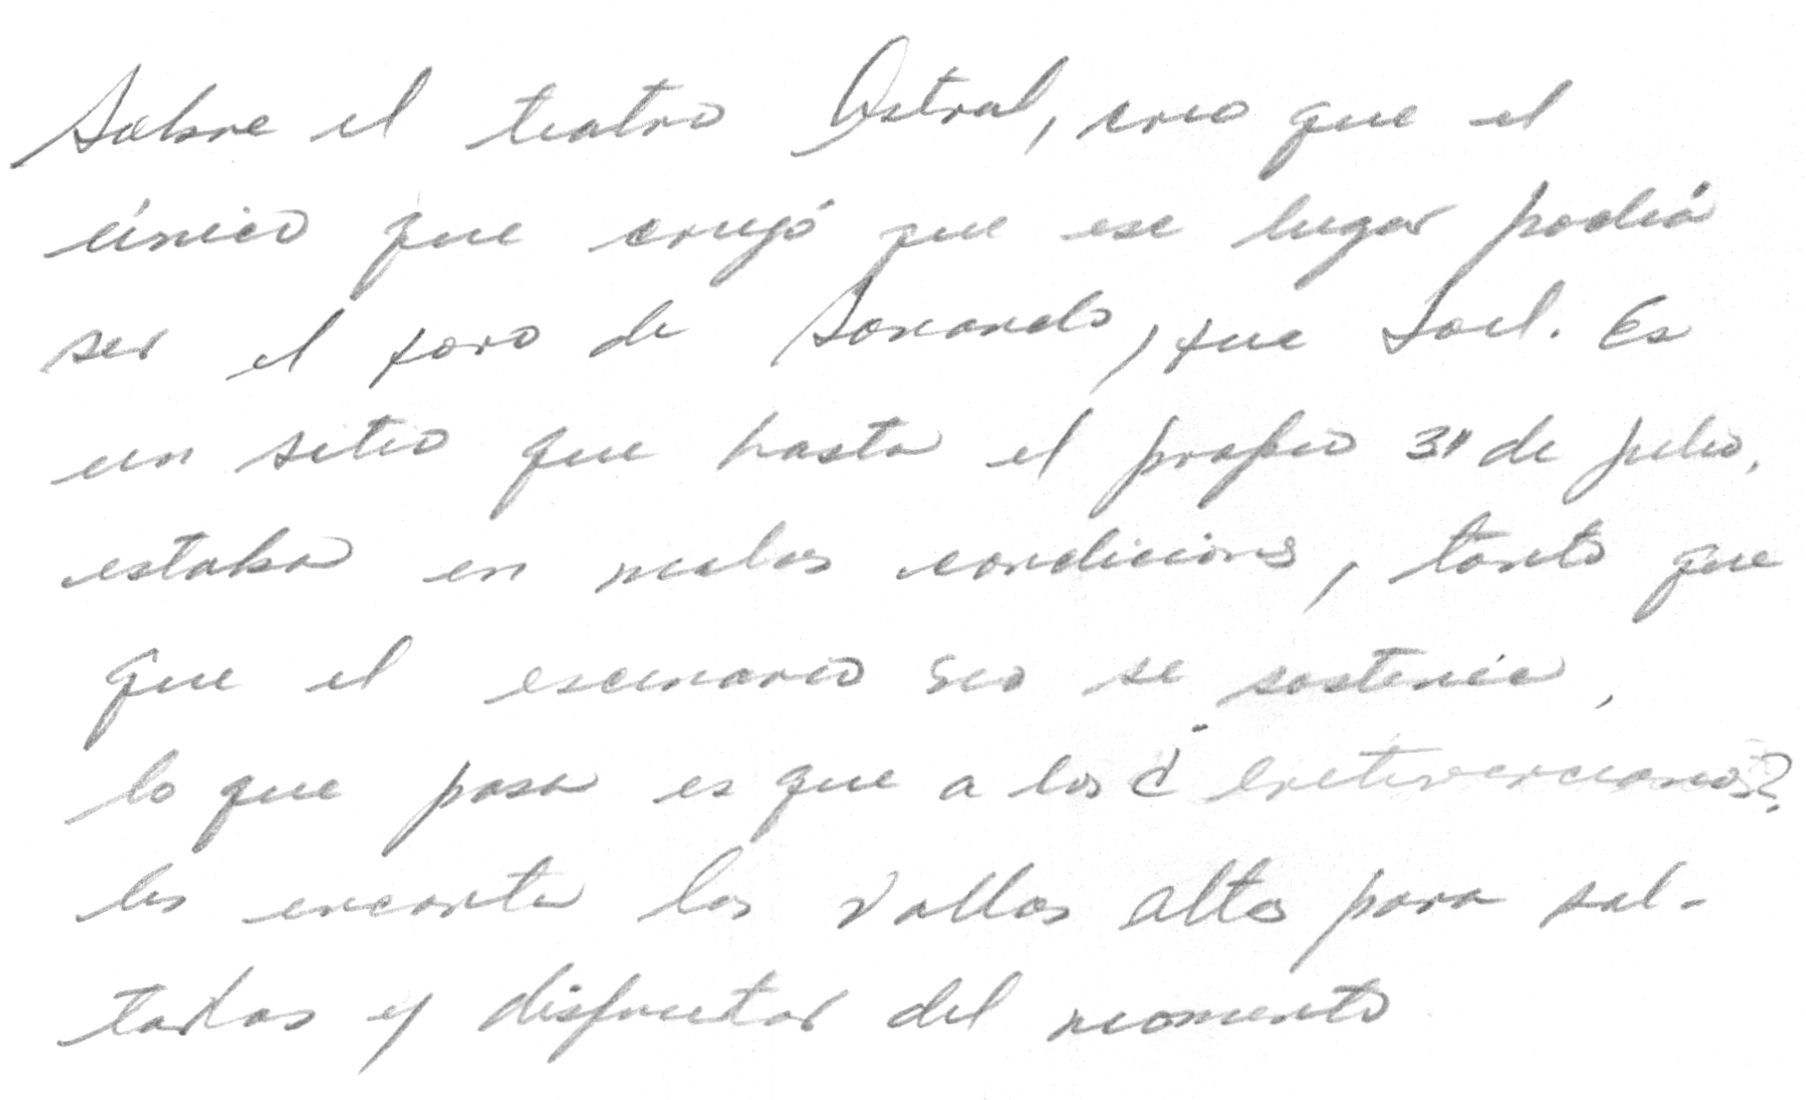 Sobre el teatro Astral, creo que el
único que creyó que ese lugar podía
ser el foro de Sonando, fue Joel. Es
un sitio que hasta el propio 31 de julio,
estaba en malas condiciones, tanto que
que el escenario no se sostenía,
lo que pasa es que a los ¿
les encanta las vallas altas para sal-
tarlas y disfrutar del momento